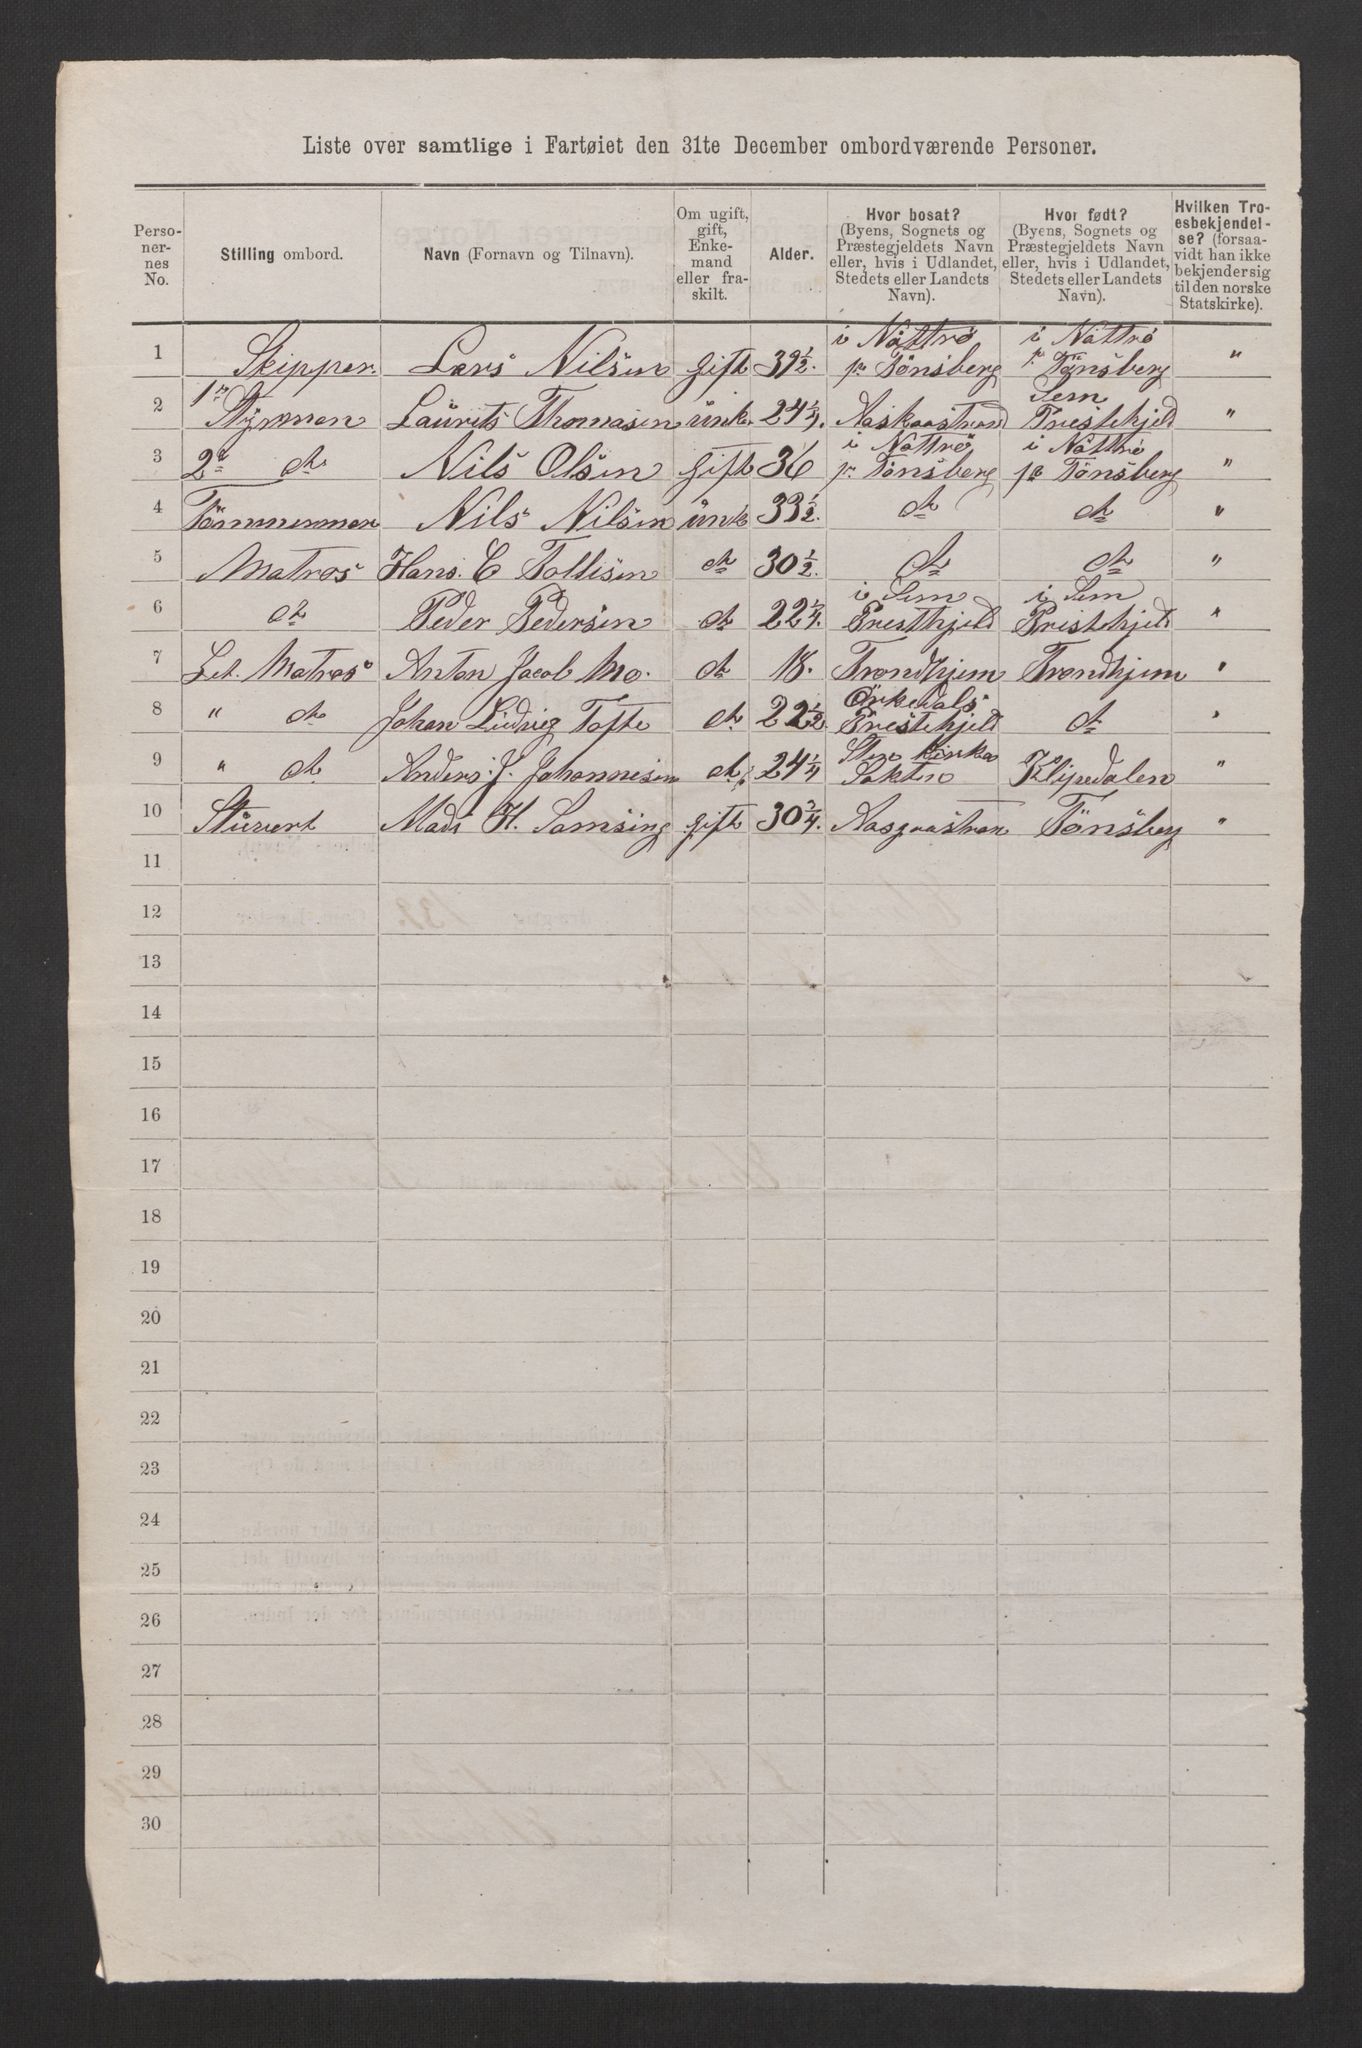 Liste over samtlige i Fartøiet den 31te December ombordværende Personer.
Perso-
ner-
nes
No.
Stilling ombord.
Navn (Fornavn og Tilnavn).
Om ugift,
gift,
Enke-
mand
eller fra-
skilt.
Alder.
Hvor bosat?
(Byens, Sognets og
Præstegjeldets Navn
eller, hvis i Udlandet,
Stedets eller Landets
Navn).
Hvor født?
(Byens, Sognets og
Præstegjeldets Navn
eller, hvis i Udlandet,
Stedets eller Landets
Navn).
Hvilken Tro-
esbekjendel-
se? (forsaa-
vidt han ikke
bekjender sig
til den norske
Statskirke).
1 Skipper. Lars Nilsen gift 39½. i Nøttrø pr Tönsberg i Nøttrø pr Tönsberg "
2 1ste Styrman Laurits Thomasen ünk. 24¼. Aaskaastrand Sem Prestehjeld "
3 2n do Nils Olsen Gift 36 i Nøttrö pr. Tönsberg i Nøttrö pr Tönsberg "
4 Tömmerman Nils Nilsen ünk 33½. do do "
5 Matros Hans. C Tollisen do 30½. do do "
6 do Peder Pedersen do 22¼. i Sem Presthjeld i Sem Pristehjeld "
7 Let. Matros Anton Jacob Mo. do 18. Trondhjem Trondhjem "
8 " do Johan Ludvig Tofte do 22½. Örkedals Prestehjeld do "
9 " do Anders. J. Johannesen do 24¼ Klipedalen "
10 Stüvert Mads H. Samsing gift 30¾. Aasgaastran Tönsberg "
11
12
13
14
15
16
17
18
19
20
21
22
23
24
25
26
27
28
29
30